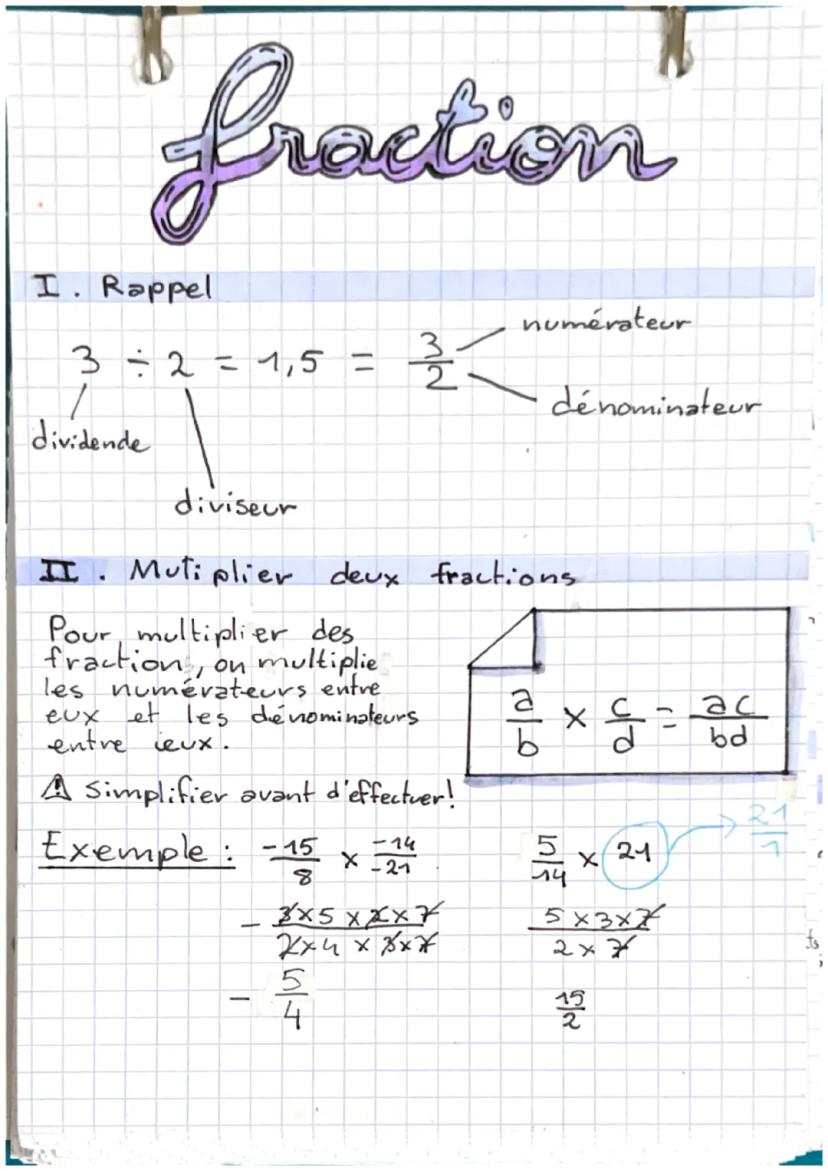 fraction
I. Rappel
3 ÷ 2 = 1,5 = 3/2
numérateur
dénominateur
dividende
diviseur
II. Mutiplier deux fractions
Pour multiplier des
fraction, on multiplie
les numérateurs entre
eux et les dénominateurs
entre ieux.
a/b × c/d = ac/bd
⚠ Simplifier avant d'effectuer!
Exemple : -15/8 × -14/-21
- 3×5×2×7/2×4×3×7
- 5/4
5/14 × 21 → 21/1
5×3×7/2×7
15/2